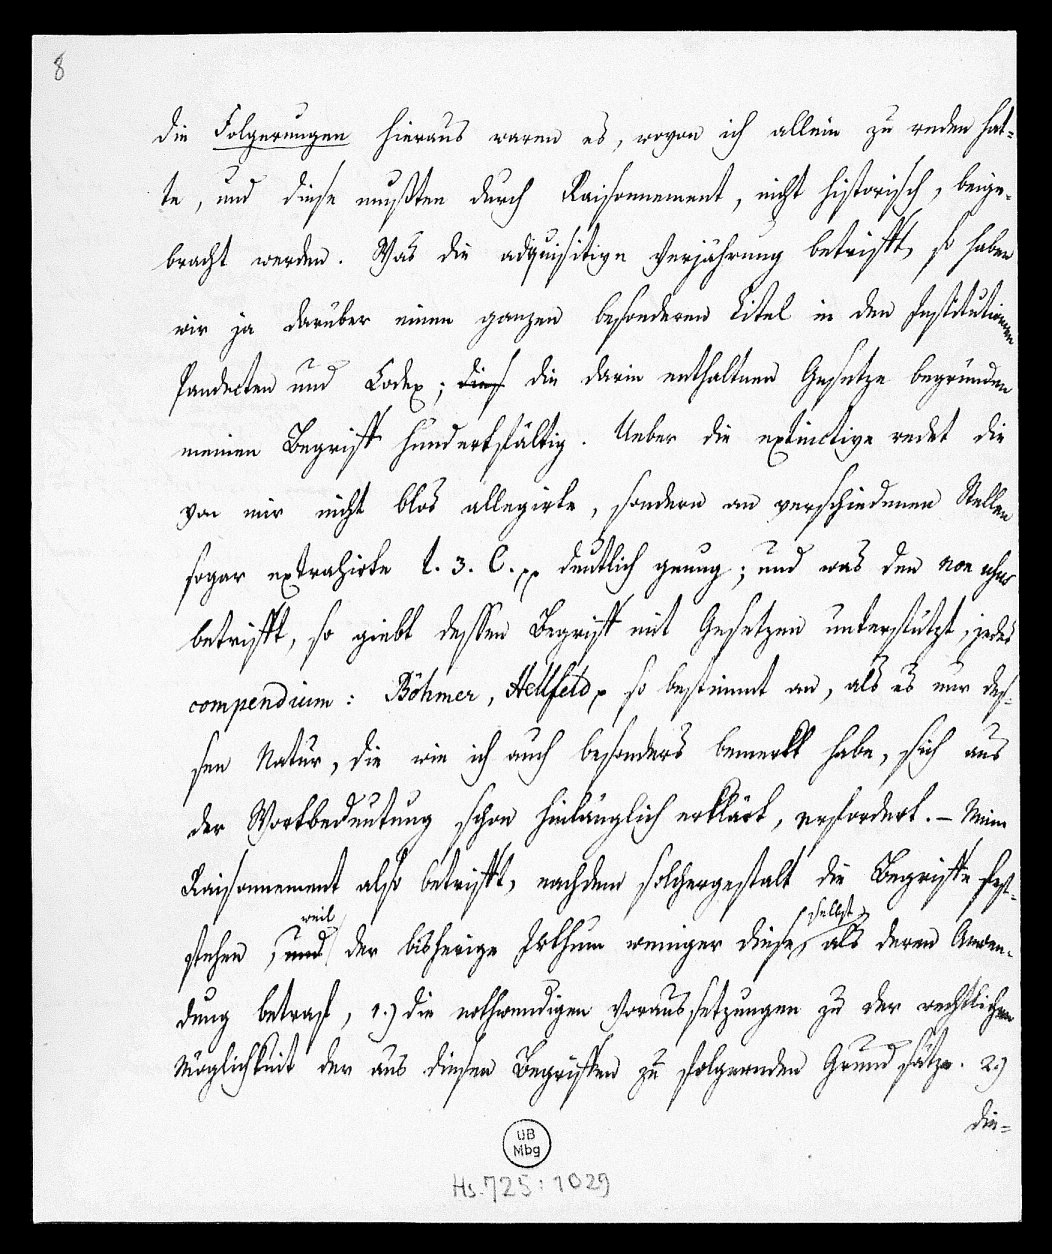 8
die Folgerungen hieraus waren es, wovon ich allein zu reden hat-
te, und diese mußten durch Raisonnement, nicht historisch, beige-
bracht werden. Was die adquisitive Verjährung betrifft, so haben
wir ja darüber einen ganzen besonderen Titel in den Institutionen
Pandecten und Codex; dies die darin enthaltnen Gesetze begründen
meinen Begriff hundertfältig. Ueber die extinctive redet die
von mir nicht blos allegirte, sondern an verschiedenen Stellen
sogar extrahirte l. 3. C. deutlich genug; und was den non usus
betrifft, so giebt dessen Begriff mit Gesetzen unterstützt, jedes
compendium: Böhmer, Hellfeld so bestimmt an, als es nur des-
sen Natur, die wie ich auch besonders bemerkt habe, sich aus
der Wortbedeutung schon hinlänglich erklärt, erfordert. – Mein
Raisonnement also betrifft, nachdem solchergestalt die Begriffe fest-
weil selbst
stehen, und der bisherige Irthum weniger diese, als deren Anwen-
dung betraf, 1.) die nothwendigen Voraussetzungen zu der rechtlichen
Möglichkeit der aus diesen Begriffen zu folgernden Grundsätze. 2.)
die-
UB
Mbg
Hs. 725:1029